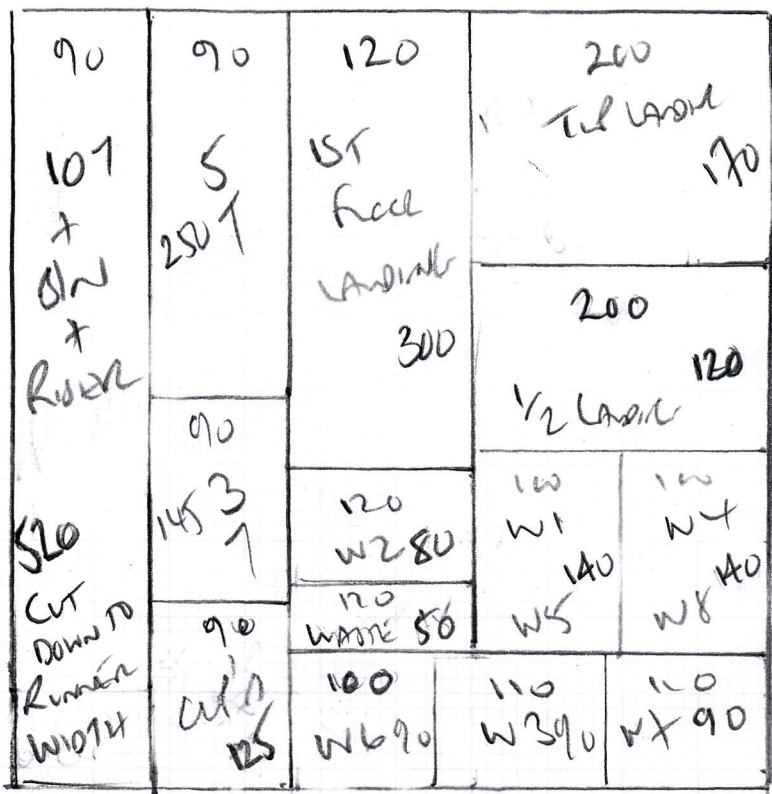 90
10T
+
B/N
+
RISER
520
CUT
DOWN TO
RUNNER
WIDTH
90
5
250 T
90
145 3
T
90
CUP'D
125
120
1ST
FLOOR
LANDING
300
120
W2 80
120
WASTE 50
200
TOP LANDING
170
200
120
1/2 LANDING
100
W1
140
W5
100
W4
140
W8
100
W6 90
110
W3 90
110
W7 90